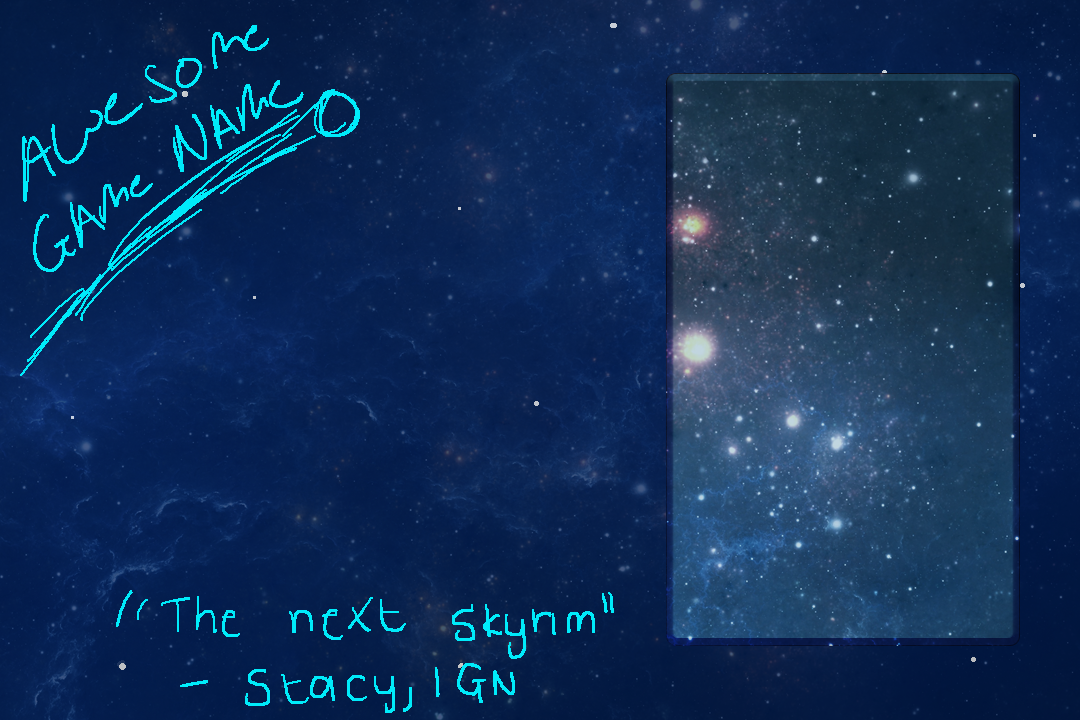 AWESOMe
GAMe NAMe
"The next skyrim"
- Stacy, IGN